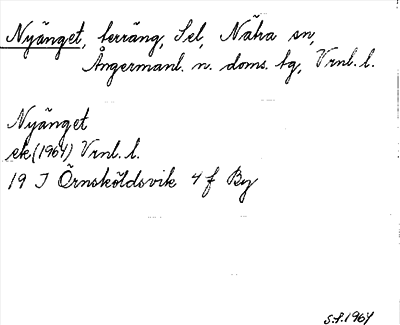 Nyänget, terräng, Sel, Nätra sn,
Ångermanl. n. doms. tg, Vrnl. l.
Nyänget
ek (1964) Vrnl. l.
19 J Örnsköldsvik 4 f By
S.f. 1964